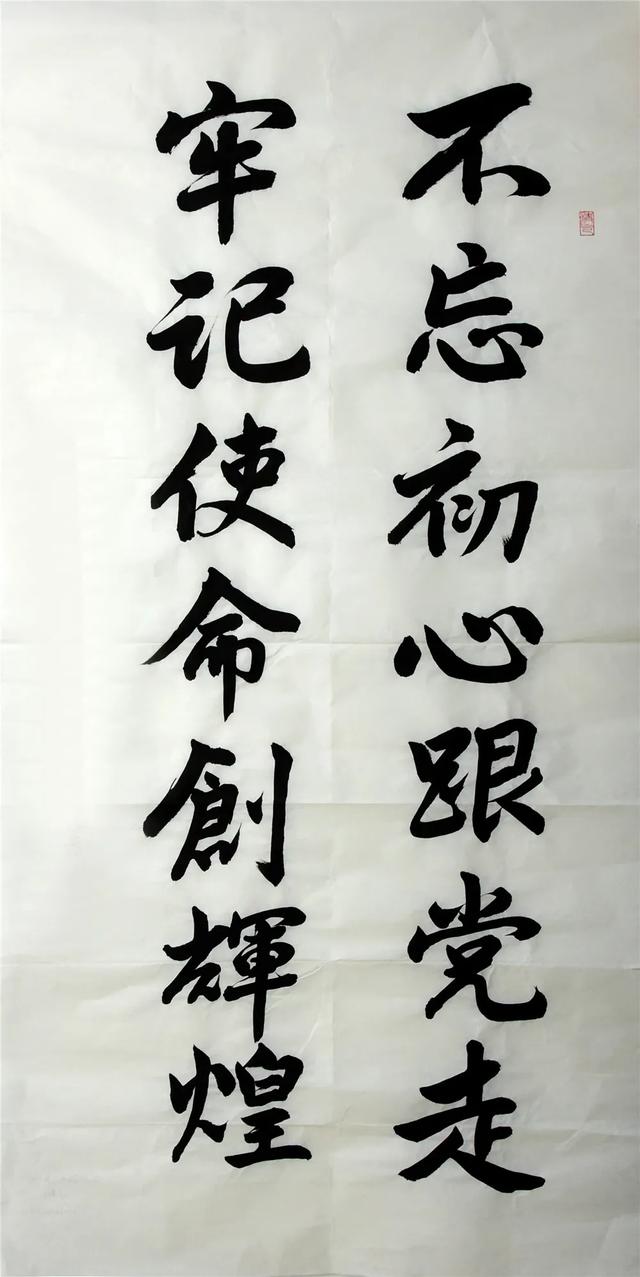 不忘初心跟党走
牢记使命創輝煌